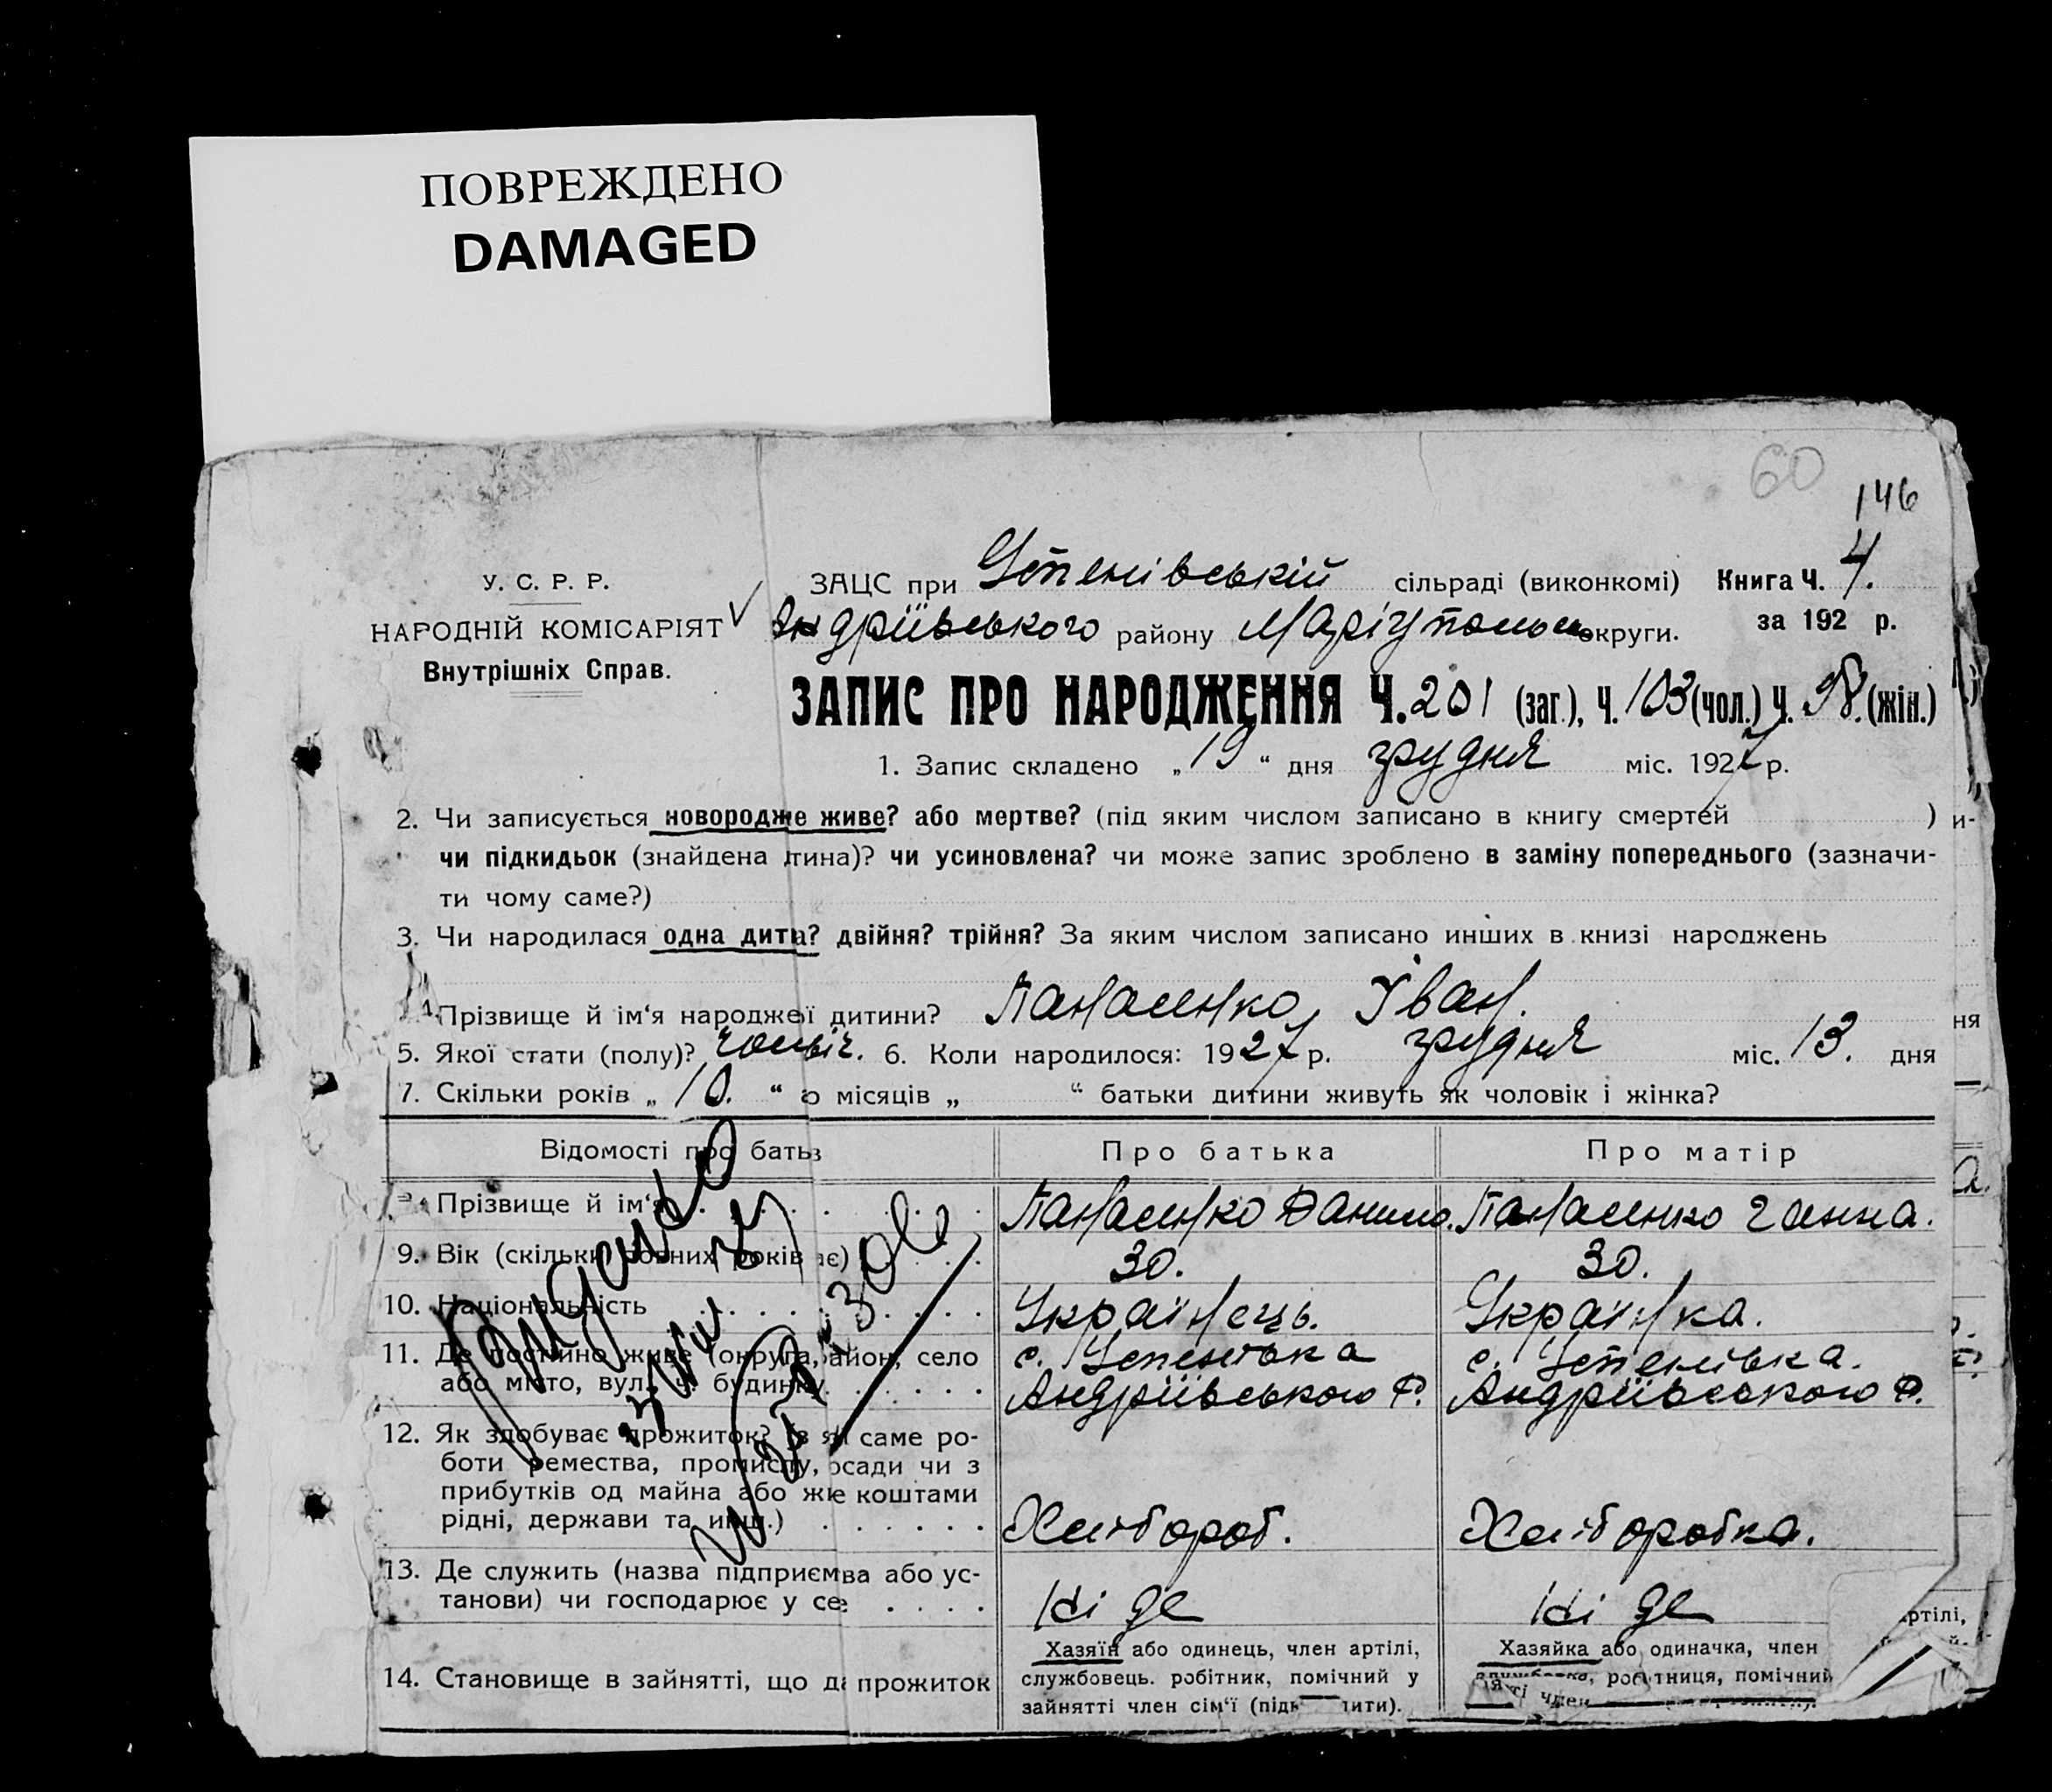 ПОВРЕЖДЕНО
DAMAGED
60
146
У. С. Р. Р.
НАРОДНІЙ КОМІСАРІЯТ
Внутрішніх Справ.
ЗАЦС при Успенівській сільраді (виконкомі) Книга Ч. 4.
Андріївського району Маріупольськ округи. за 192 р.
ЗАПИС ПРО НАРОДЖЕННЯ Ч. 201 (заг.), Ч. 103 (чол.) Ч. 98. (жін.)
1. Запис складено „ 19 “ дня грудня міс. 1927 р.
2. Чи записується новородже живе? або мертве? (під яким числом записано в книгу смертей ) и-
чи підкидьок (знайдена тина)? чи усиновлена? чи може запис зроблено в заміну попереднього (зазначи-
ти чому саме?)
3. Чи народилася одна дита? двійня? трійня? За яким числом записано инших в книзі народжень
4. Прізвище й ім‘я народжеї дитини? Панасенко Іван. ня
5. Якої стати (полу)? чоловіч. 6. Коли народилося: 1927 р. грудня міс. 13. дня
7. Скільки років „ 10. “ о місяців „ “ батьки дитини живуть як чоловік і жінка?
Відомості про батьз Про батька Про матір
Прізвище й ім‘я Панасенко Данило. Панасенко Ганна.
9. Вік (скільки повних років ає) 30. 30.
10. Національність Українець. Українка.
11. Де постійно живе (округа, айон, село с. Успенівка с. Успенівка.
або місто, вул., ч. будинку Андріївського Р. Андріївського Р.
12. Як здобуває прожиток? (з я саме ро-
боти ремества, промислу, осади чи з
прибутків од майна або жие коштами
рідні, держави та инш.) Хлібороб. Хліборобка.
13. Де служить (назва підприємва або ус-
танови) чи господарює у се Ні де Ні де
14. Становище в зайнятті, що да прожиток
Хазяїн або одинець, член артілі,
службовець. робітник, помічний у
зайнятті член сім‘ї (підк ити).
Хазяйка або одиначка, член ртілі,
роб тниця, помічний
яті член